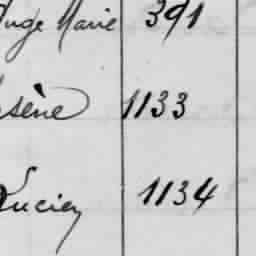 Ange Marie 391
Arsène 1133
Lucien 1134